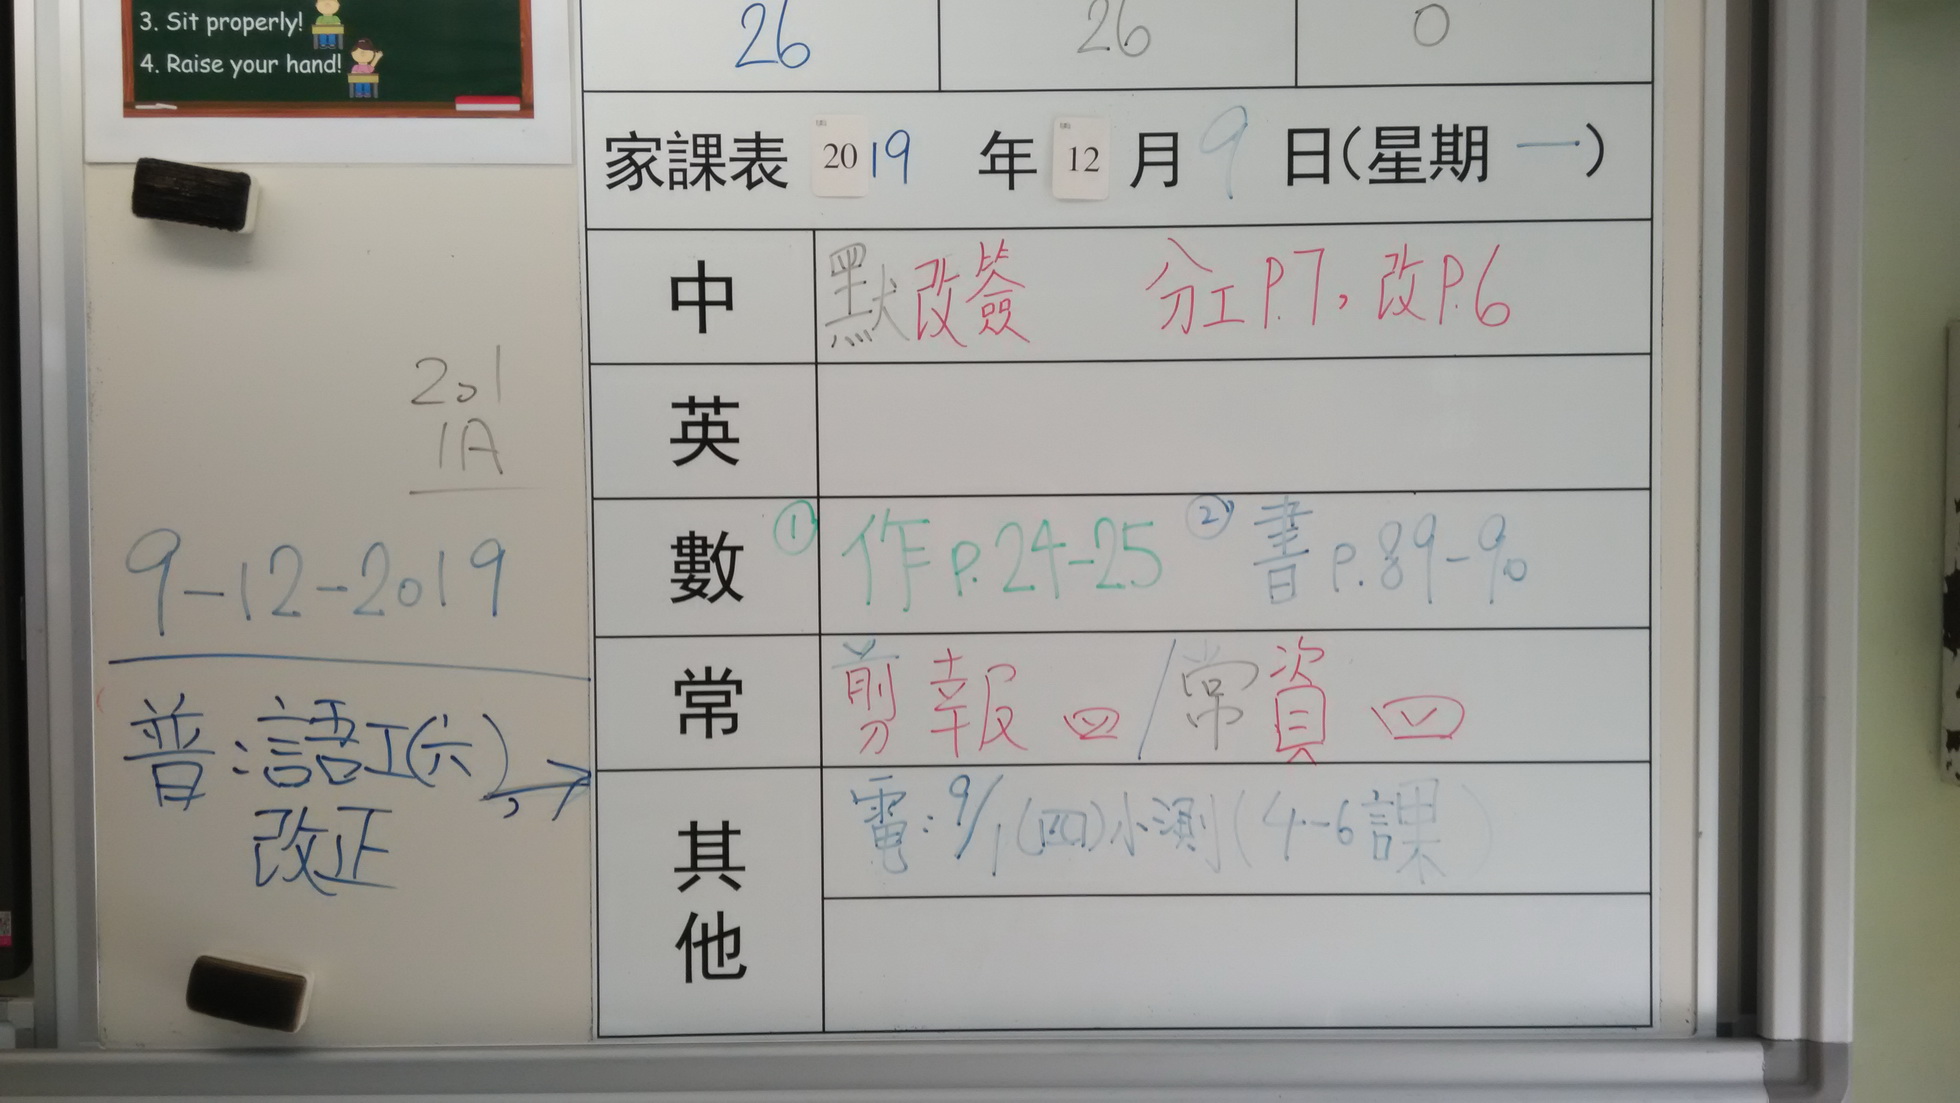 3. Sit properly!
4. Raise your hand!
26 26 0
家課表 2019 年 12 月 9 日(星期 一)
中 默改簽 分工P.7, 改P.6
英
數 ① 作 p.24-25 ② 書 p.89-90
常 剪報 四/常資 四
其他 電: 9/1(四)小測(4-6課)
201
1A
9-12-2019
普:語工(六),→
改正